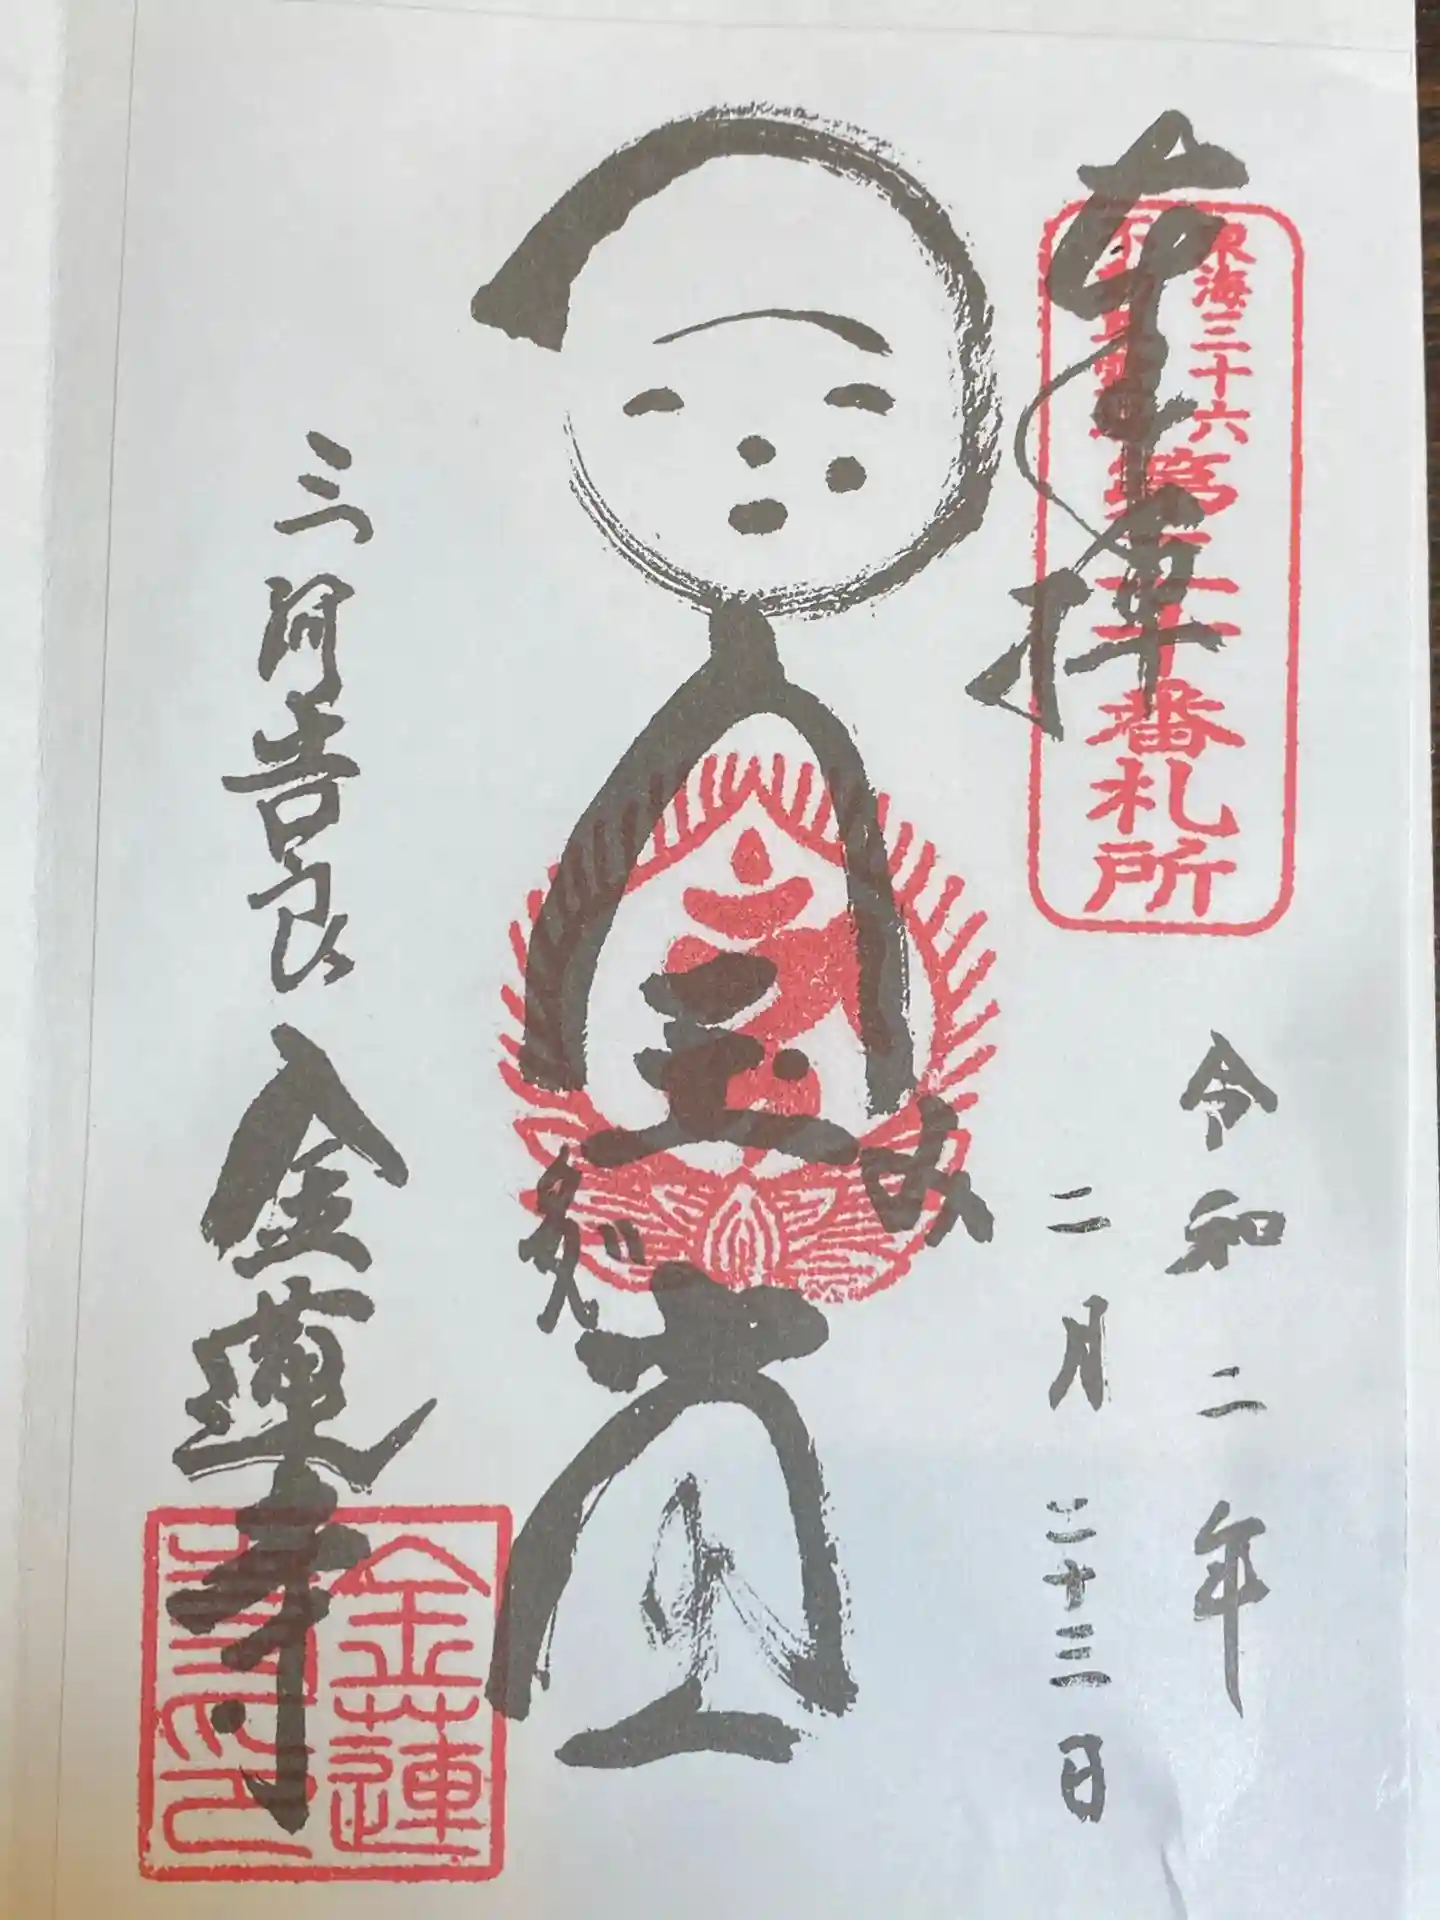 奉拝
東海三十六
不動尊霊場
第二十番札所
令和二年
二月二十三日
三河吉良 金蓮寺
金蓮
寺印